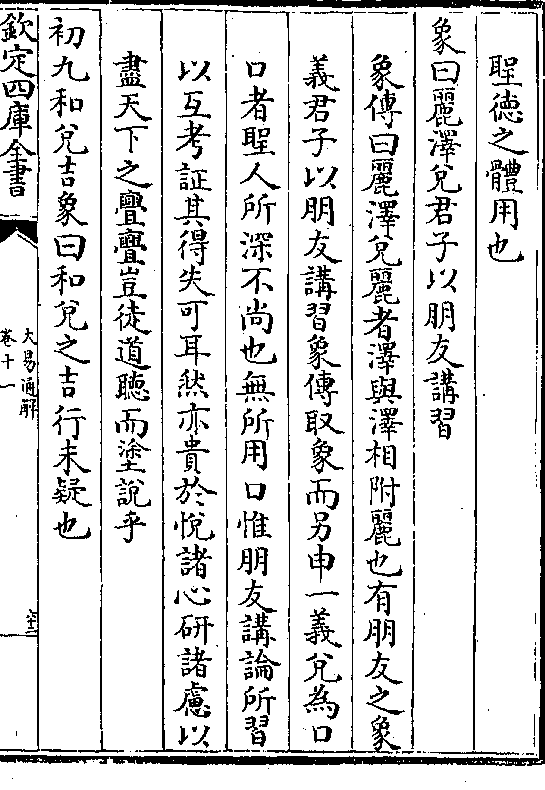 聖德之體用也
象曰麗澤兌君子以朋友講習
象傳曰麗澤兌麗者澤與澤相附麗也有朋友之象
義君子以朋友講習象傳取象而另申一義兌為口
口者聖人所深不尚也無所用口惟朋友講論所習
以互考証其得失可耳然亦貴於悅諸心研諸慮以
盡天下之亹亹豈徒道聽而塗說乎
初九和兌吉象曰和兌之吉行未疑也
欽定四庫全書
大易通解
卷十一